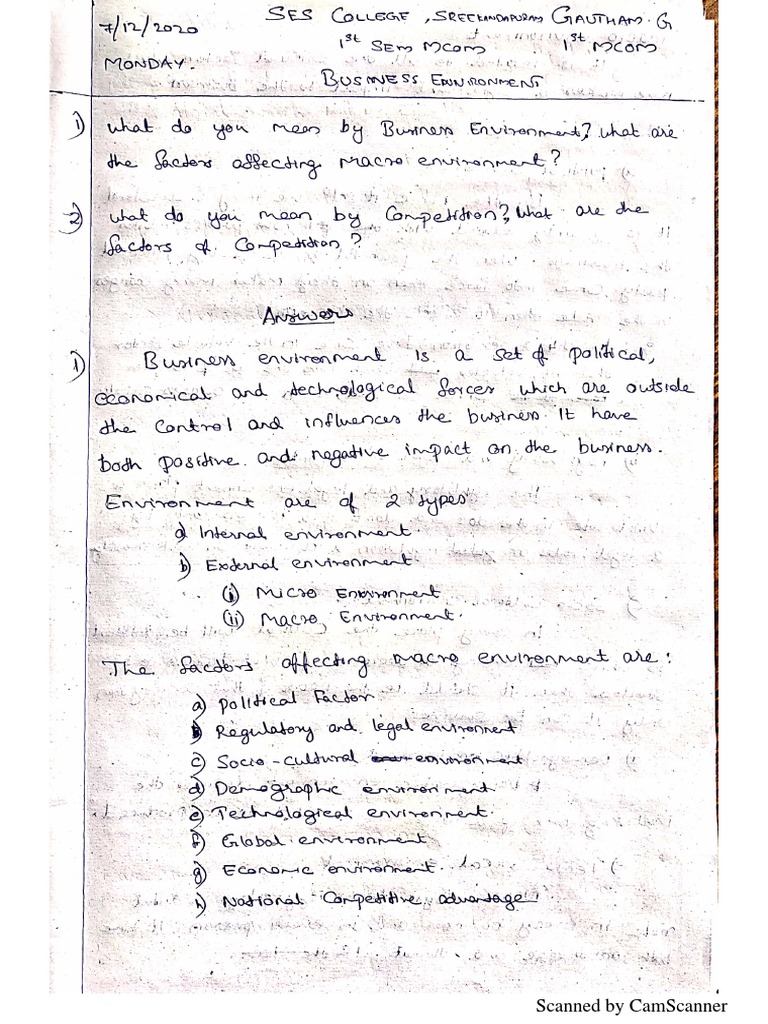 7/12/2020 SES COLLEGE, SREEKANDAPURAM GAUTHAM. G
1st SEM MCOM 1st MCOM
MONDAY.
BUSINESS ENVIRONMENT
1) What do you mean by Business Environment? What are
the factors affecting Macro environment?
2) What do you mean by Competition? What are the
factors of Competition?
Answers
1) Business environment is a set of political,
economical and technological forces which are outside
the control and influences the business. It have
both positive and negative impact on the business.
Environment are of 2 types
a) Internal environment.
b) External environment.
(i) Micro Environment
(ii) Macro Environment.
The factors affecting Macro environment are:
a) Political Factor
b) Regulatory and legal environment
c) Socio-cultural environment
d) Demographic environment.
e) Technological environment.
f) Global environment
g) Economic environment.
h) National Competitive advantage.
Scanned by CamScanner